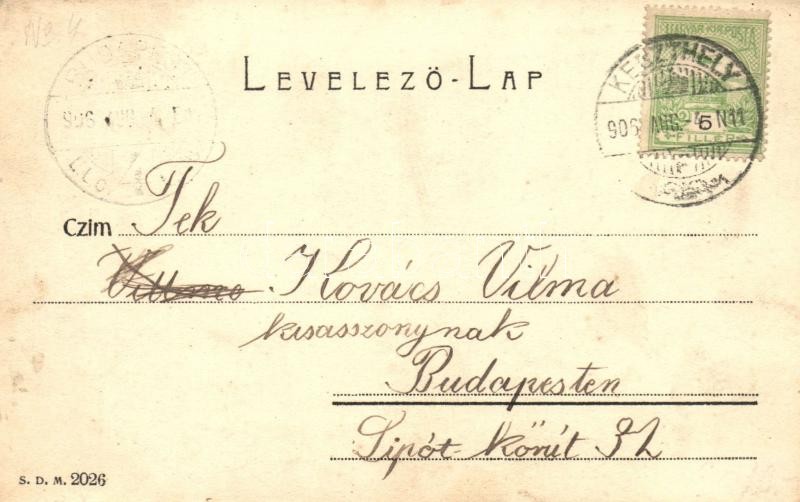 No 4
LEVELEZŐ-LAP
MAGYAR KIR. POSTA
KESZTHELY
906 AUG. 24 N11
5
FILLÉR
BUDAPEST
906 AUG
Czim Tek
Kovács Vilma
kisasszonynak
Budapesten
Lipót körút 32
S. D. M. 2026